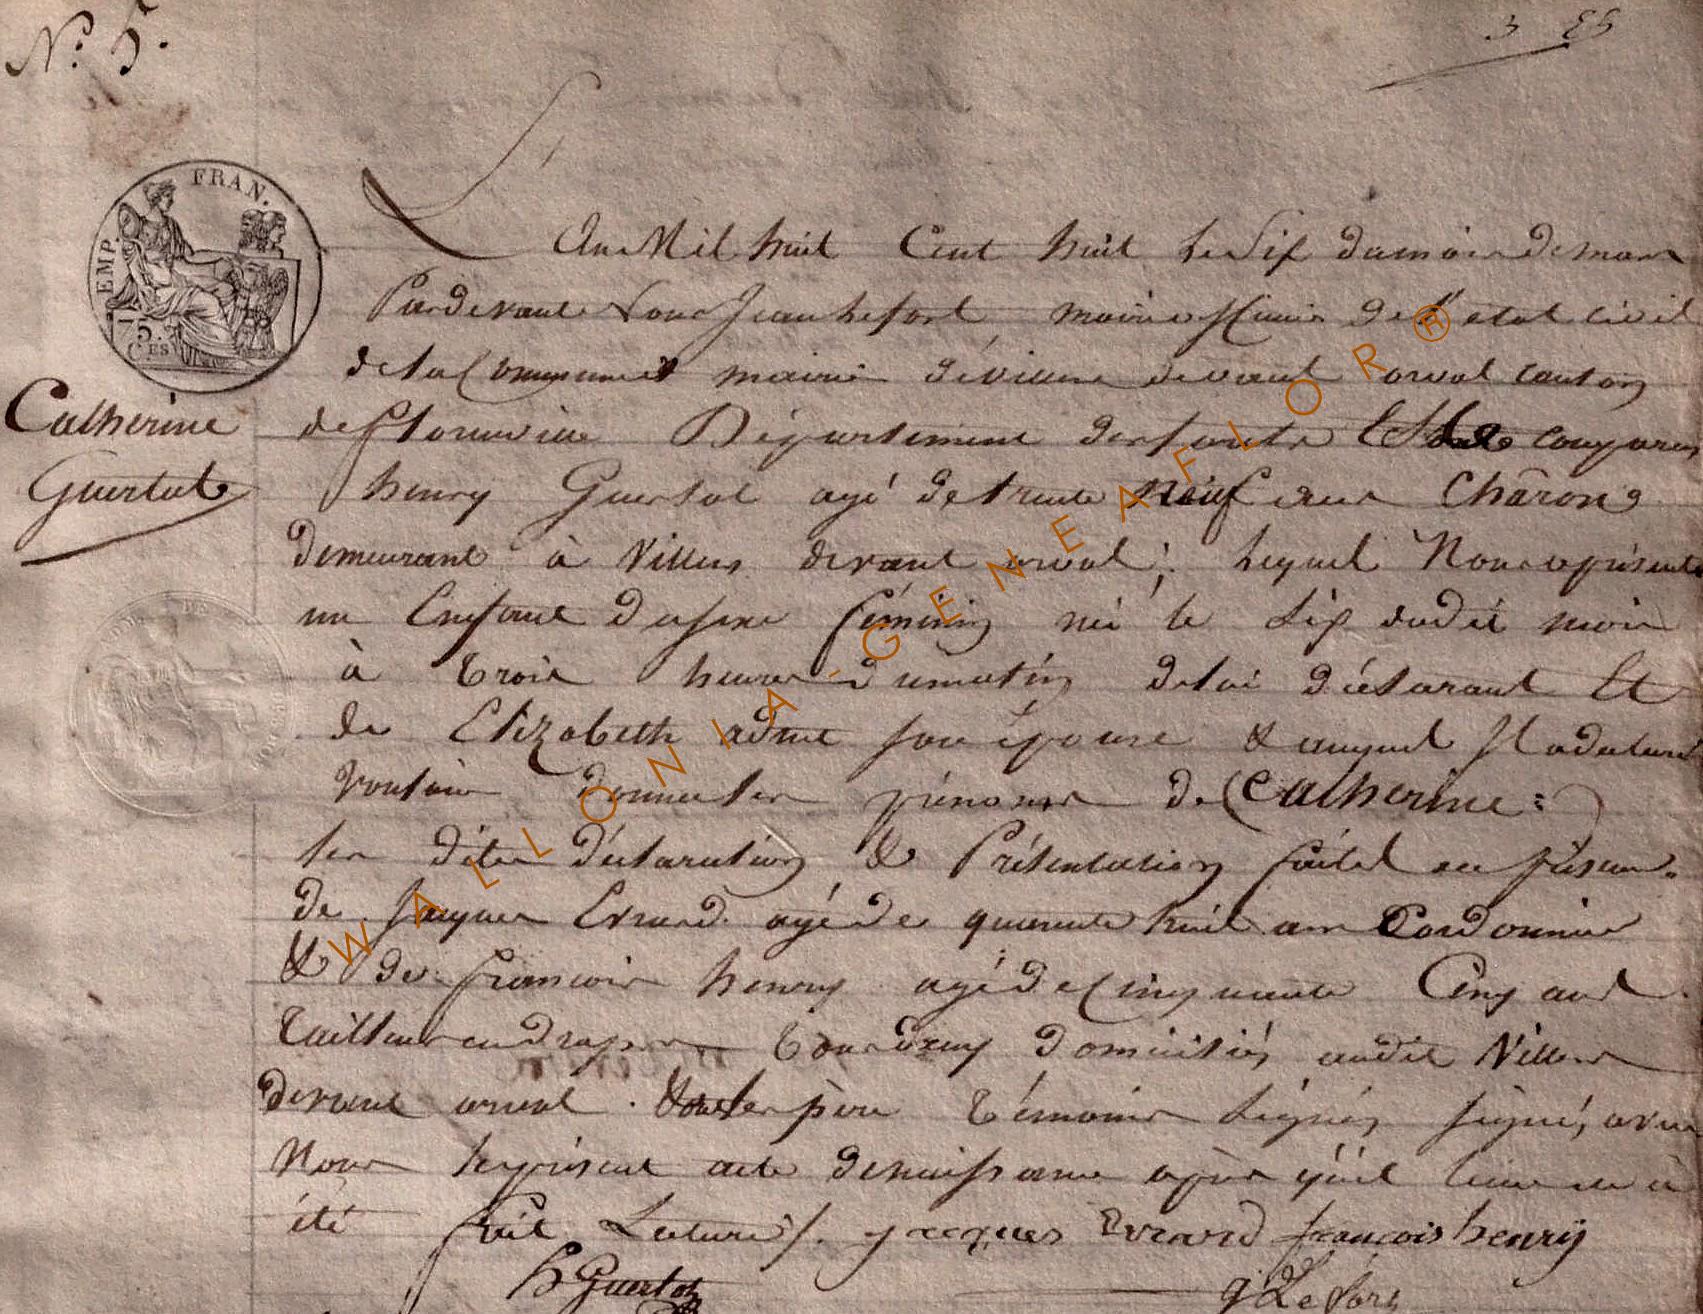 N.o 5.
3 E5
EMP. FRAN.
75.
CES
L'An Mil huit Cent huit le Six du mois de mars
Pardevant Nous Jean Lefort maire officier de l'etat civil
de la Commune mairie de villers devant orval canton
de florenville Département des forets Est comparu
henry Guertot agé de trente Neuf ans Charon
Catherine
Guertot
demeurant à Villers devant orval; lequel Nous a présenté
un Enfant du sexe féminin né le six dudit mois
à trois heures du matin de lui déclarant Et
de Elizabeth adnet son épouse & auquel Il a declaré
Vouloir donner les prénoms de Catherine:
les dites déclaration & Présentation faites en présence
de Jacques Evrard agé de quarente huit ans Cordonnier
& de francois henry agé de Cinquante Cinq ans
tailleur en draps tous deux domiciliés audit Villers
devant orval. les père témoins signés, avec
Nous le présent acte de naissance après qu'il leur en a
été fait Lecture ./. jacques Evrard françois henrÿ
h Guertot
g Lefort
WALLONIA-GENEAFLOR®